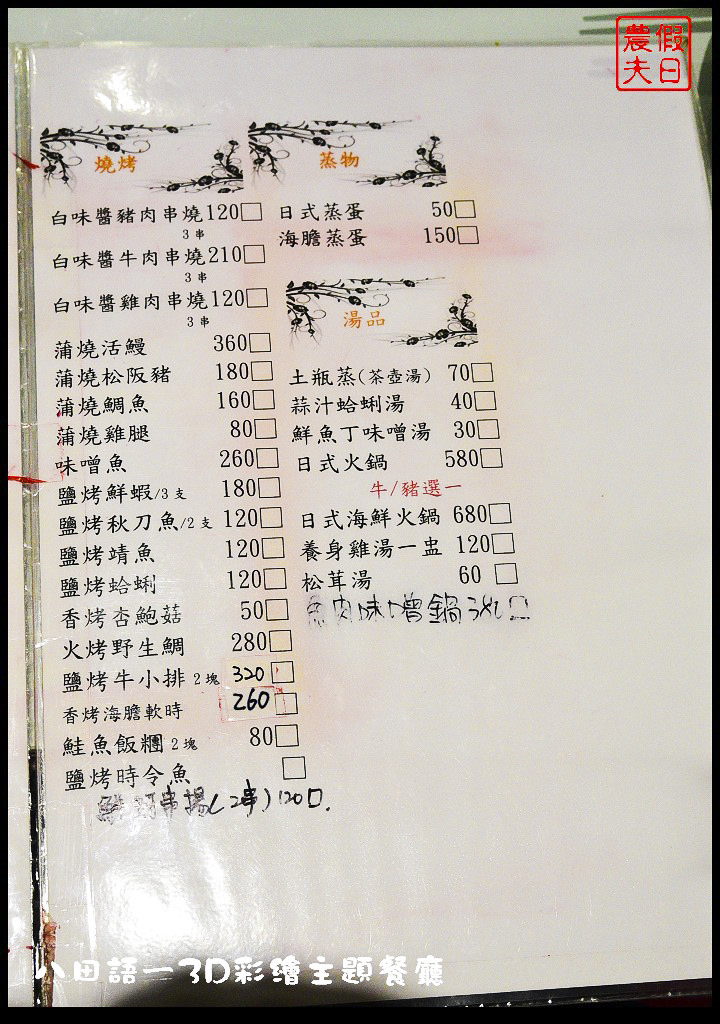 假日
農夫
燒烤
白味醬豬肉串燒120□
3串
白味醬牛肉串燒210□
3串
白味醬雞肉串燒120□
3串
蒲燒活鰻 360□
蒲燒松阪豬 180□
蒲燒鯛魚 160□
蒲燒雞腿 80□
味噌魚 260□
鹽烤鮮蝦/3支 180□
鹽烤秋刀魚/2支 120□
鹽烤靖魚 120□
鹽烤蛤蜊 120□
香烤杏鮑菇 50□
火烤野生鯛 280□
鹽烤牛小排 2塊 320□
香烤海膽軟時 260□
鮭魚飯糰 2塊 80□
鹽烤時令魚 □
串揚(2串)120□.
蒸物
日式蒸蛋 50□
海膽蒸蛋 150□
湯品
土瓶蒸(茶壺湯) 70□
蒜汁蛤蜊湯 40□
鮮魚丁味噌湯 30□
日式火鍋 580□
牛/豬選一
日式海鮮火鍋 680□
養身雞湯一盅 120□
松茸湯 60 □
肉味噌鍋
八田語一3D彩繪主題餐廳